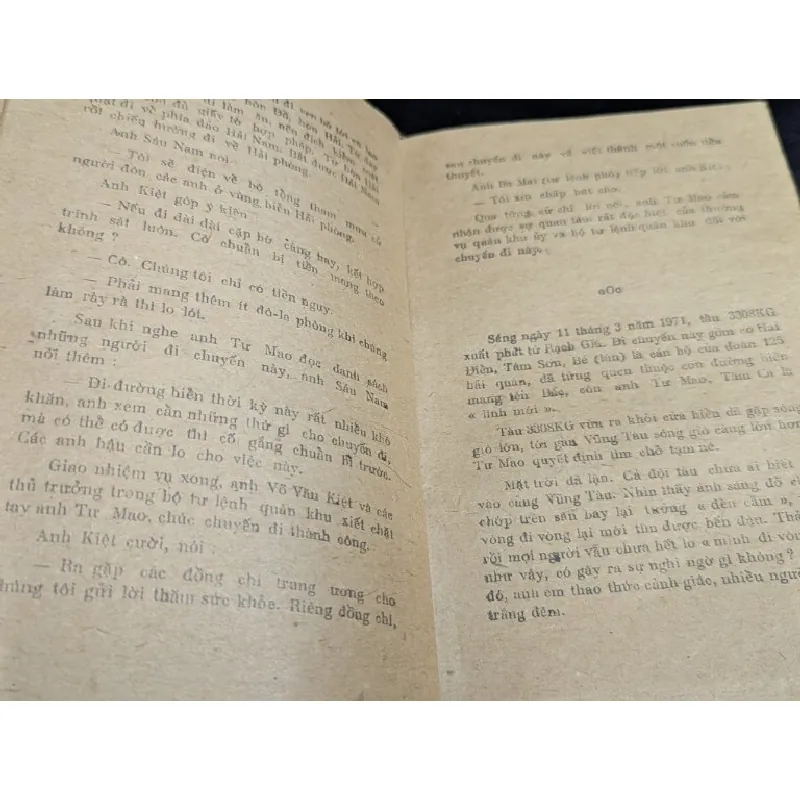 đủ giấy tờ hợp pháp. Từ
đi về phía đảo Hải Nam,
rồi chiếu hướng đi về Hải phòng.
Anh Sáu Nam nói:
— Tôi sẽ điện về bộ tổng tham mưu cử
người đón các anh ở vùng biển Hải phòng.
Anh Kiệt góp ý kiến
— Nếu đi dài dài cặp bờ càng hay, kết hợp
trinh sát luôn. Có chuẩn bị tiền mang theo
không ?
— Có. Chúng tôi chỉ có tiền ngụy.
— Phải mang thêm ít đô-la phòng khi chúng
làm rầy rà thì lo lót.
Sau khi nghe anh Tư Mao đọc danh sách
những người đi chuyến này, anh Sáu Nam
nói thêm :
— Đi đường biển thời kỳ này rất nhiều khó
khăn, anh xem cần những thứ gì cho chuyến đi,
mà có thể có được thì cố gắng chuẩn bị trước.
Các anh hậu cần lo cho việc này.
Giao nhiệm vụ xong, anh Võ Văn Kiệt và các
thủ trưởng trong bộ tư lệnh quân khu xiết chặt
tay anh Tư Mao, chúc chuyến đi thành công.
Anh Kiệt cười, nói :
— Ra gặp các đồng chí trung ương cho
chúng tôi gửi lời thăm sức khỏe. Riêng đồng chí,
sau chuyến đi này về viết thành một cuốn tiểu
thuyết.
Anh Ba Mai (tư lệnh phó) tiếp lời anh Kiệt.
— Tôi xin chấp bút cho.
Qua từng cử chỉ lời nói, anh Tư Mao cảm
nhận được sự quan tâm rất đặc biệt của thường
vụ quân khu ủy và bộ tư lệnh quân khu đối với
chuyến đi này.
oOo
Sáng ngày 11 tháng 3 năm 1971, tàu 3308KG
xuất phát từ Rạch Giá. Đi chuyến này gồm có Hai
Điền, Tám Sơn, Bé (lùn) là cán bộ của đoàn 125
hải quân, đã từng quen thuộc con đường biển
mang tên Bác, còn anh Tư Mao, Tám Ca là
« lính mới ».
Tàu 3308KG vừa ra khỏi cửa biển đã gặp sóng
gió lớn, tới gần Vũng Tàu sóng gió càng lớn hơn
Tư Mao quyết định tìm chỗ tạm né.
Mặt trời đã lặn. Cả đội tàu chưa ai biết
vào cảng Vũng Tàu. Nhìn thấy ánh sáng đỏ
chớp trên sân bay lại tưởng « đèn cấm »,
vòng đi vòng lại mới tìm được bến đậu. Thả
rồi mọi người vẫn chưa hết lo « mình đi vòng
như vậy, có gây ra sự nghi ngờ gì không ?
đó, anh em thao thức cảnh giác, nhiều người
trắng đêm.